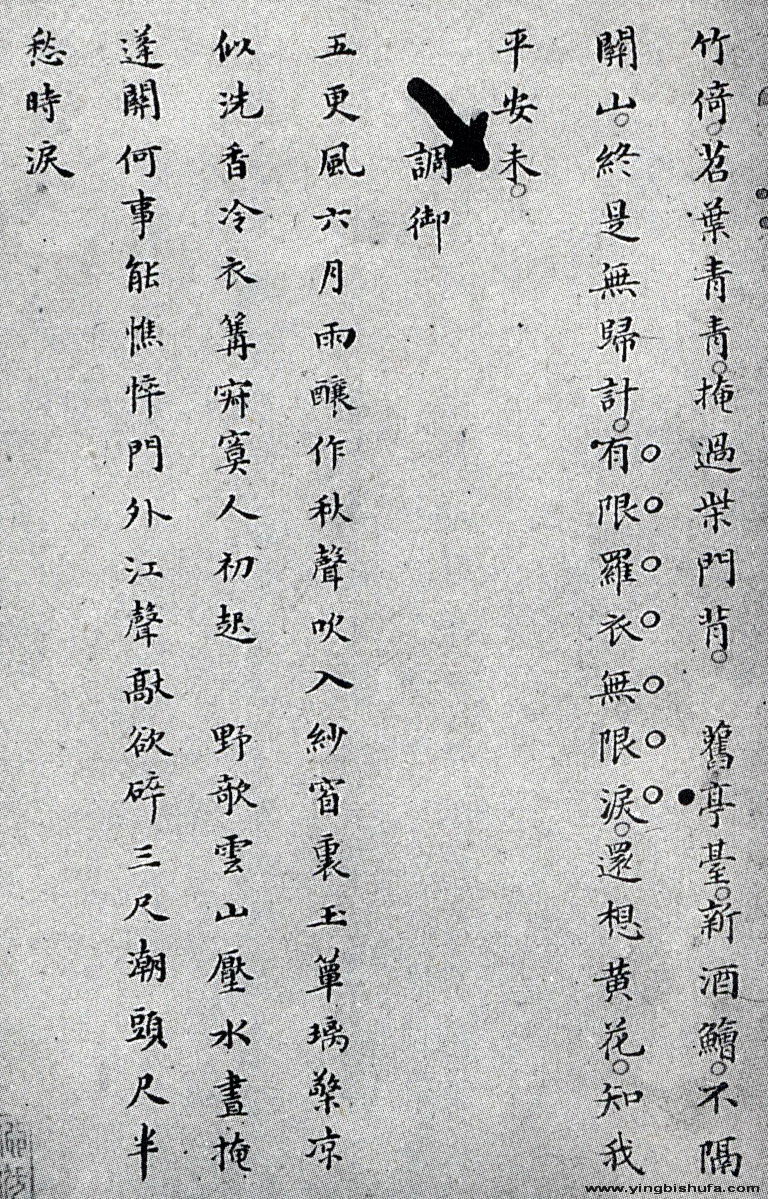 竹倚茗葉青青掩過柴門背 舊亭臺新酒鱠不隔
關山終是無歸計有限羅衣無限淚還想黃花知我
平安未
調御
五更風六月雨釀作秋聲吹入紗窗裏玉簟璃檠涼
似洗香冷衣篝寂寞人初起 野欹雲山壓水晝掩
蓬關何事能憔悴門外江聲敲欲碎三尺潮頭尺半
愁時淚
www.yingbishufa.com